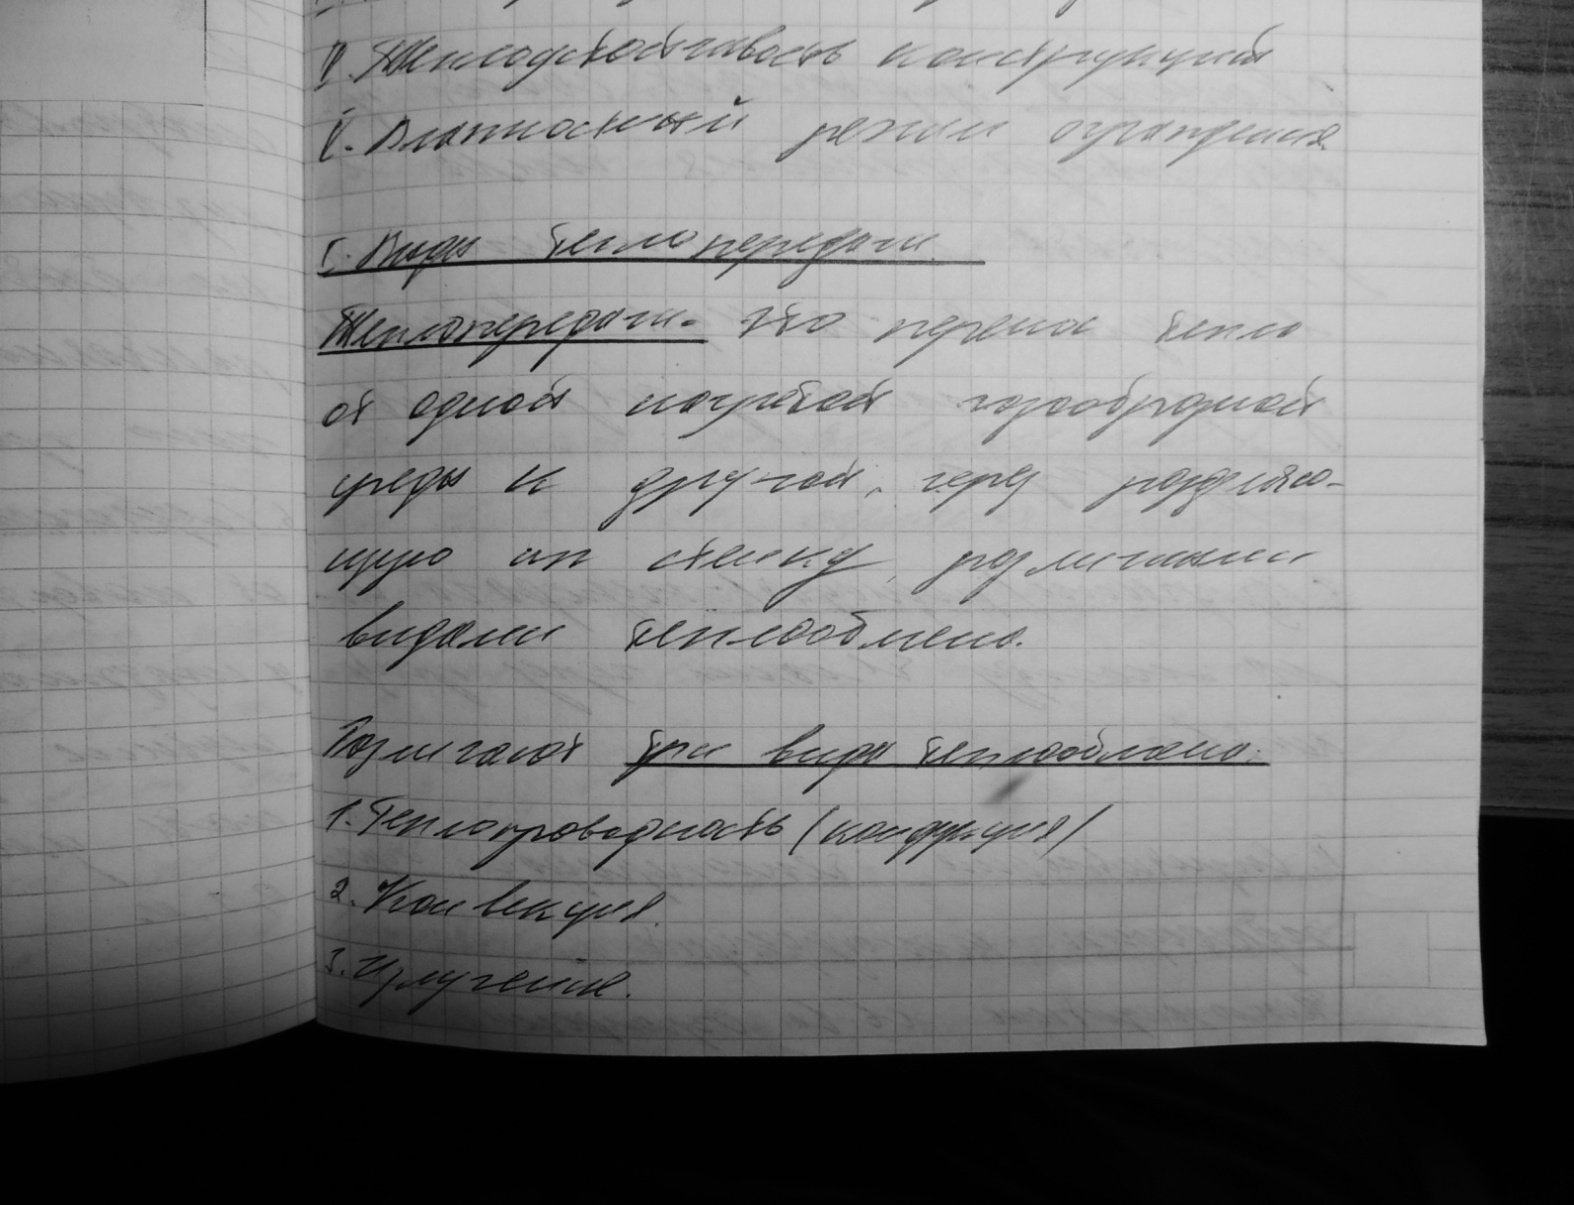 IV. Теплоустойчивость конструкций
V. Влажностный режим ограждения.
I. Виды теплопередачи.
Теплопередача - это перенос тепла
от одной нагретой газообразной
среды к другой, через разделяю-
щую их стенку, различными
видами теплообмена.
Различают три вида теплообмена:
1. Теплопроводность (кондукция)
2. Конвекция.
3. Излучение.